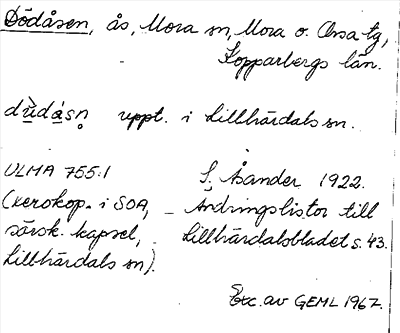 Dödåsen, ås, Mora sn, Mora o. Orsa tg,
Kopparbergs län.
dùdásn̥ uppt. i Lillhärdals sn.
ULMA 755:1 S. Åsander 1922.
(xerokop. i SOA, – Ändringslistor till
särsk. kapsel, Lillhärdalsbladet s. 43.
Lillhärdals sn).
Exc. av GEML 1967.